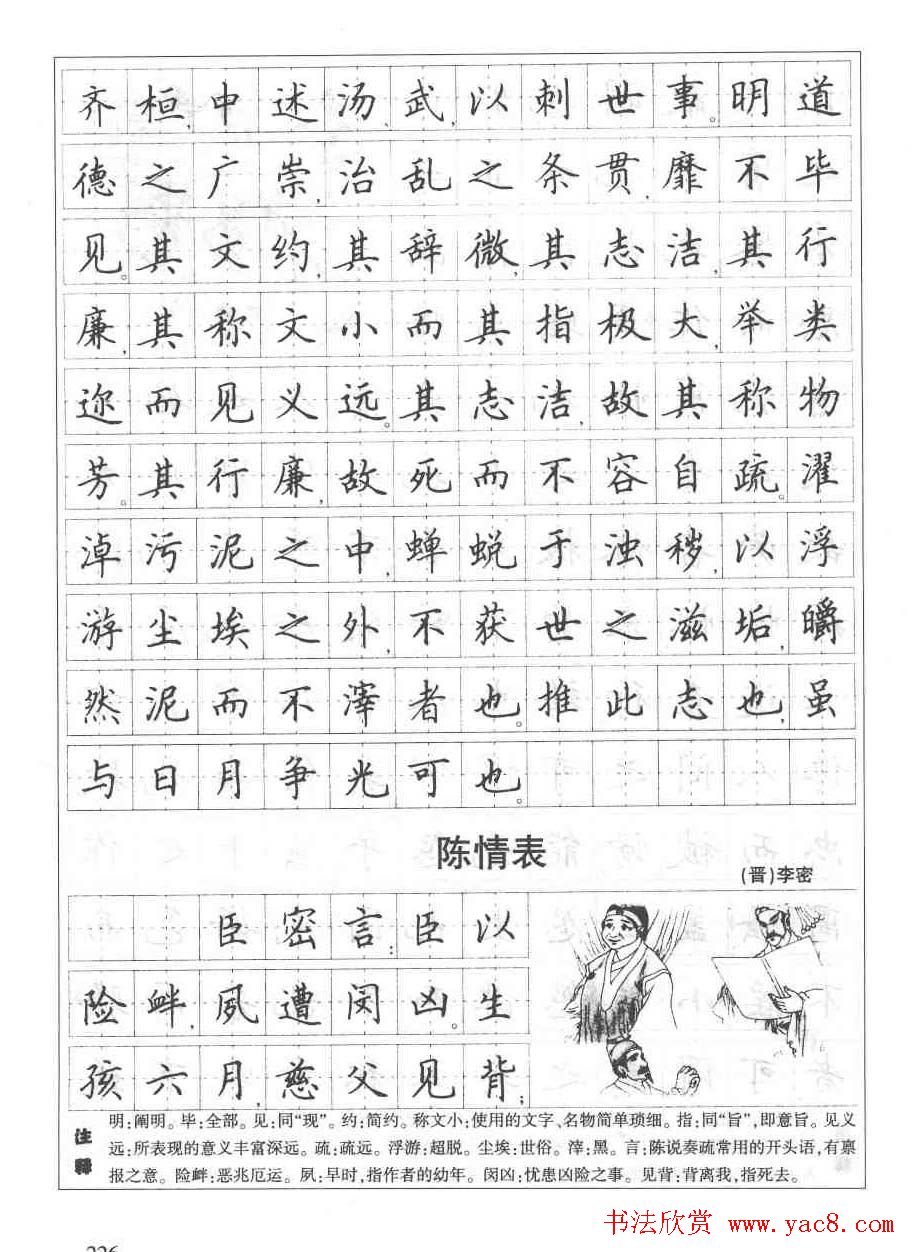 齐桓,中述汤武,以刺世事。明道
德之广崇,治乱之条贯,靡不毕
见。其文约,其辞微,其志洁,其行
廉,其称文小而其指极大,举类
迩而见义远。其志洁,故其称物
芳。其行廉,故死而不容自疏。濯
淖污泥之中,蝉蜕于浊秽,以浮
游尘埃之外,不获世之滋垢,皭
然泥而不滓者也。推此志也,虽
与日月争光可也。
陈情表
(晋)李密
臣密言:臣以
险衅,夙遭闵凶。生
孩六月,慈父见背;
注释
明:阐明。毕:全部。见:同“现”。约:简约。称文小:使用的文字、名物简单琐细。指:同“旨”,即意旨。见义
远:所表现的意义丰富深远。疏:疏远。浮游:超脱。尘埃:世俗。滓:黑。言:陈说奏疏常用的开头语,有禀
报之意。险衅:恶兆厄运。夙:早时,指作者的幼年。闵凶:忧患凶险之事。见背:背离我,指死去。
书法欣赏 www.yac8.com